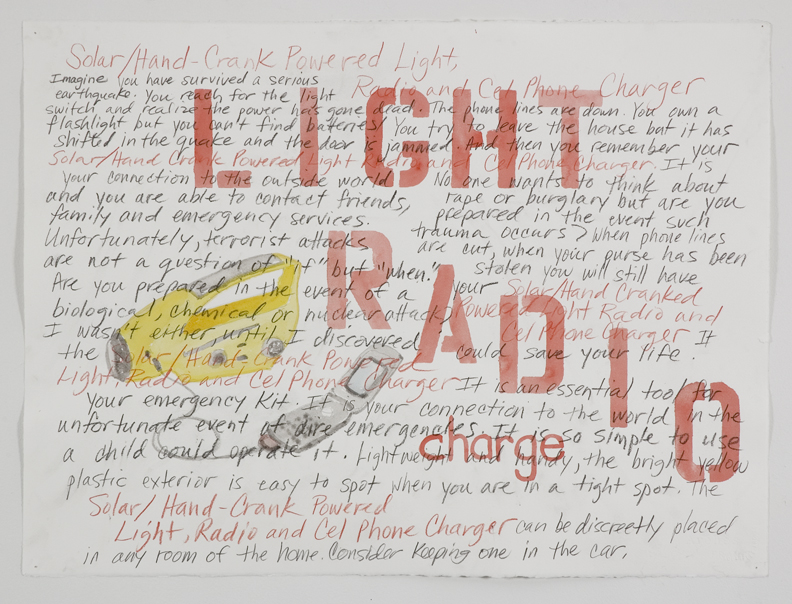 Solar/Hand-Crank Powered Light,
Radio and Cel Phone Charger
Imagine you have survived a serious
earthquake. You reach for the light
switch and realize the power has gone dead. The phone lines are down. You own a
flashlight but you can't find batteries. You try to leave the house but it has
shifted in the quake and the door is jammed. And then you remember your
Solar/Hand Crank Powered Light Radio and Cel Phone Charger. It is
your connection to the outside world
and you are able to contact friends,
family and emergency services.
No one wants to think about
rape or burglary but are you
prepared in the event such
trauma occurs? When phone lines
are cut, when your purse has been
stolen you will still have
your Solar/Hand Cranked
Powered Light Radio and
Cel Phone Charger It
could save your life.
Unfortunately, terrorist attacks
are not a question of "if" but "when."
Are you prepared in the event of a
biological, chemical or nuclear attack?
I wasn't either until I discovered
the Solar/Hand-Crank Powered
Light, Radio and Cel Phone Charger It is an essential tool for
your emergency kit. It is your connection to the world in the
unfortunate event of dire emergencies. It is so simple to use
a child could operate it. Lightweight and handy, the bright yellow
plastic exterior is easy to spot when you are in a tight spot. The
Solar/Hand-Crank Powered
Light, Radio and Cel Phone Charger can be discreetly placed
in any room of the home. Consider keeping one in the car.
LIGHT
RADIO
charge